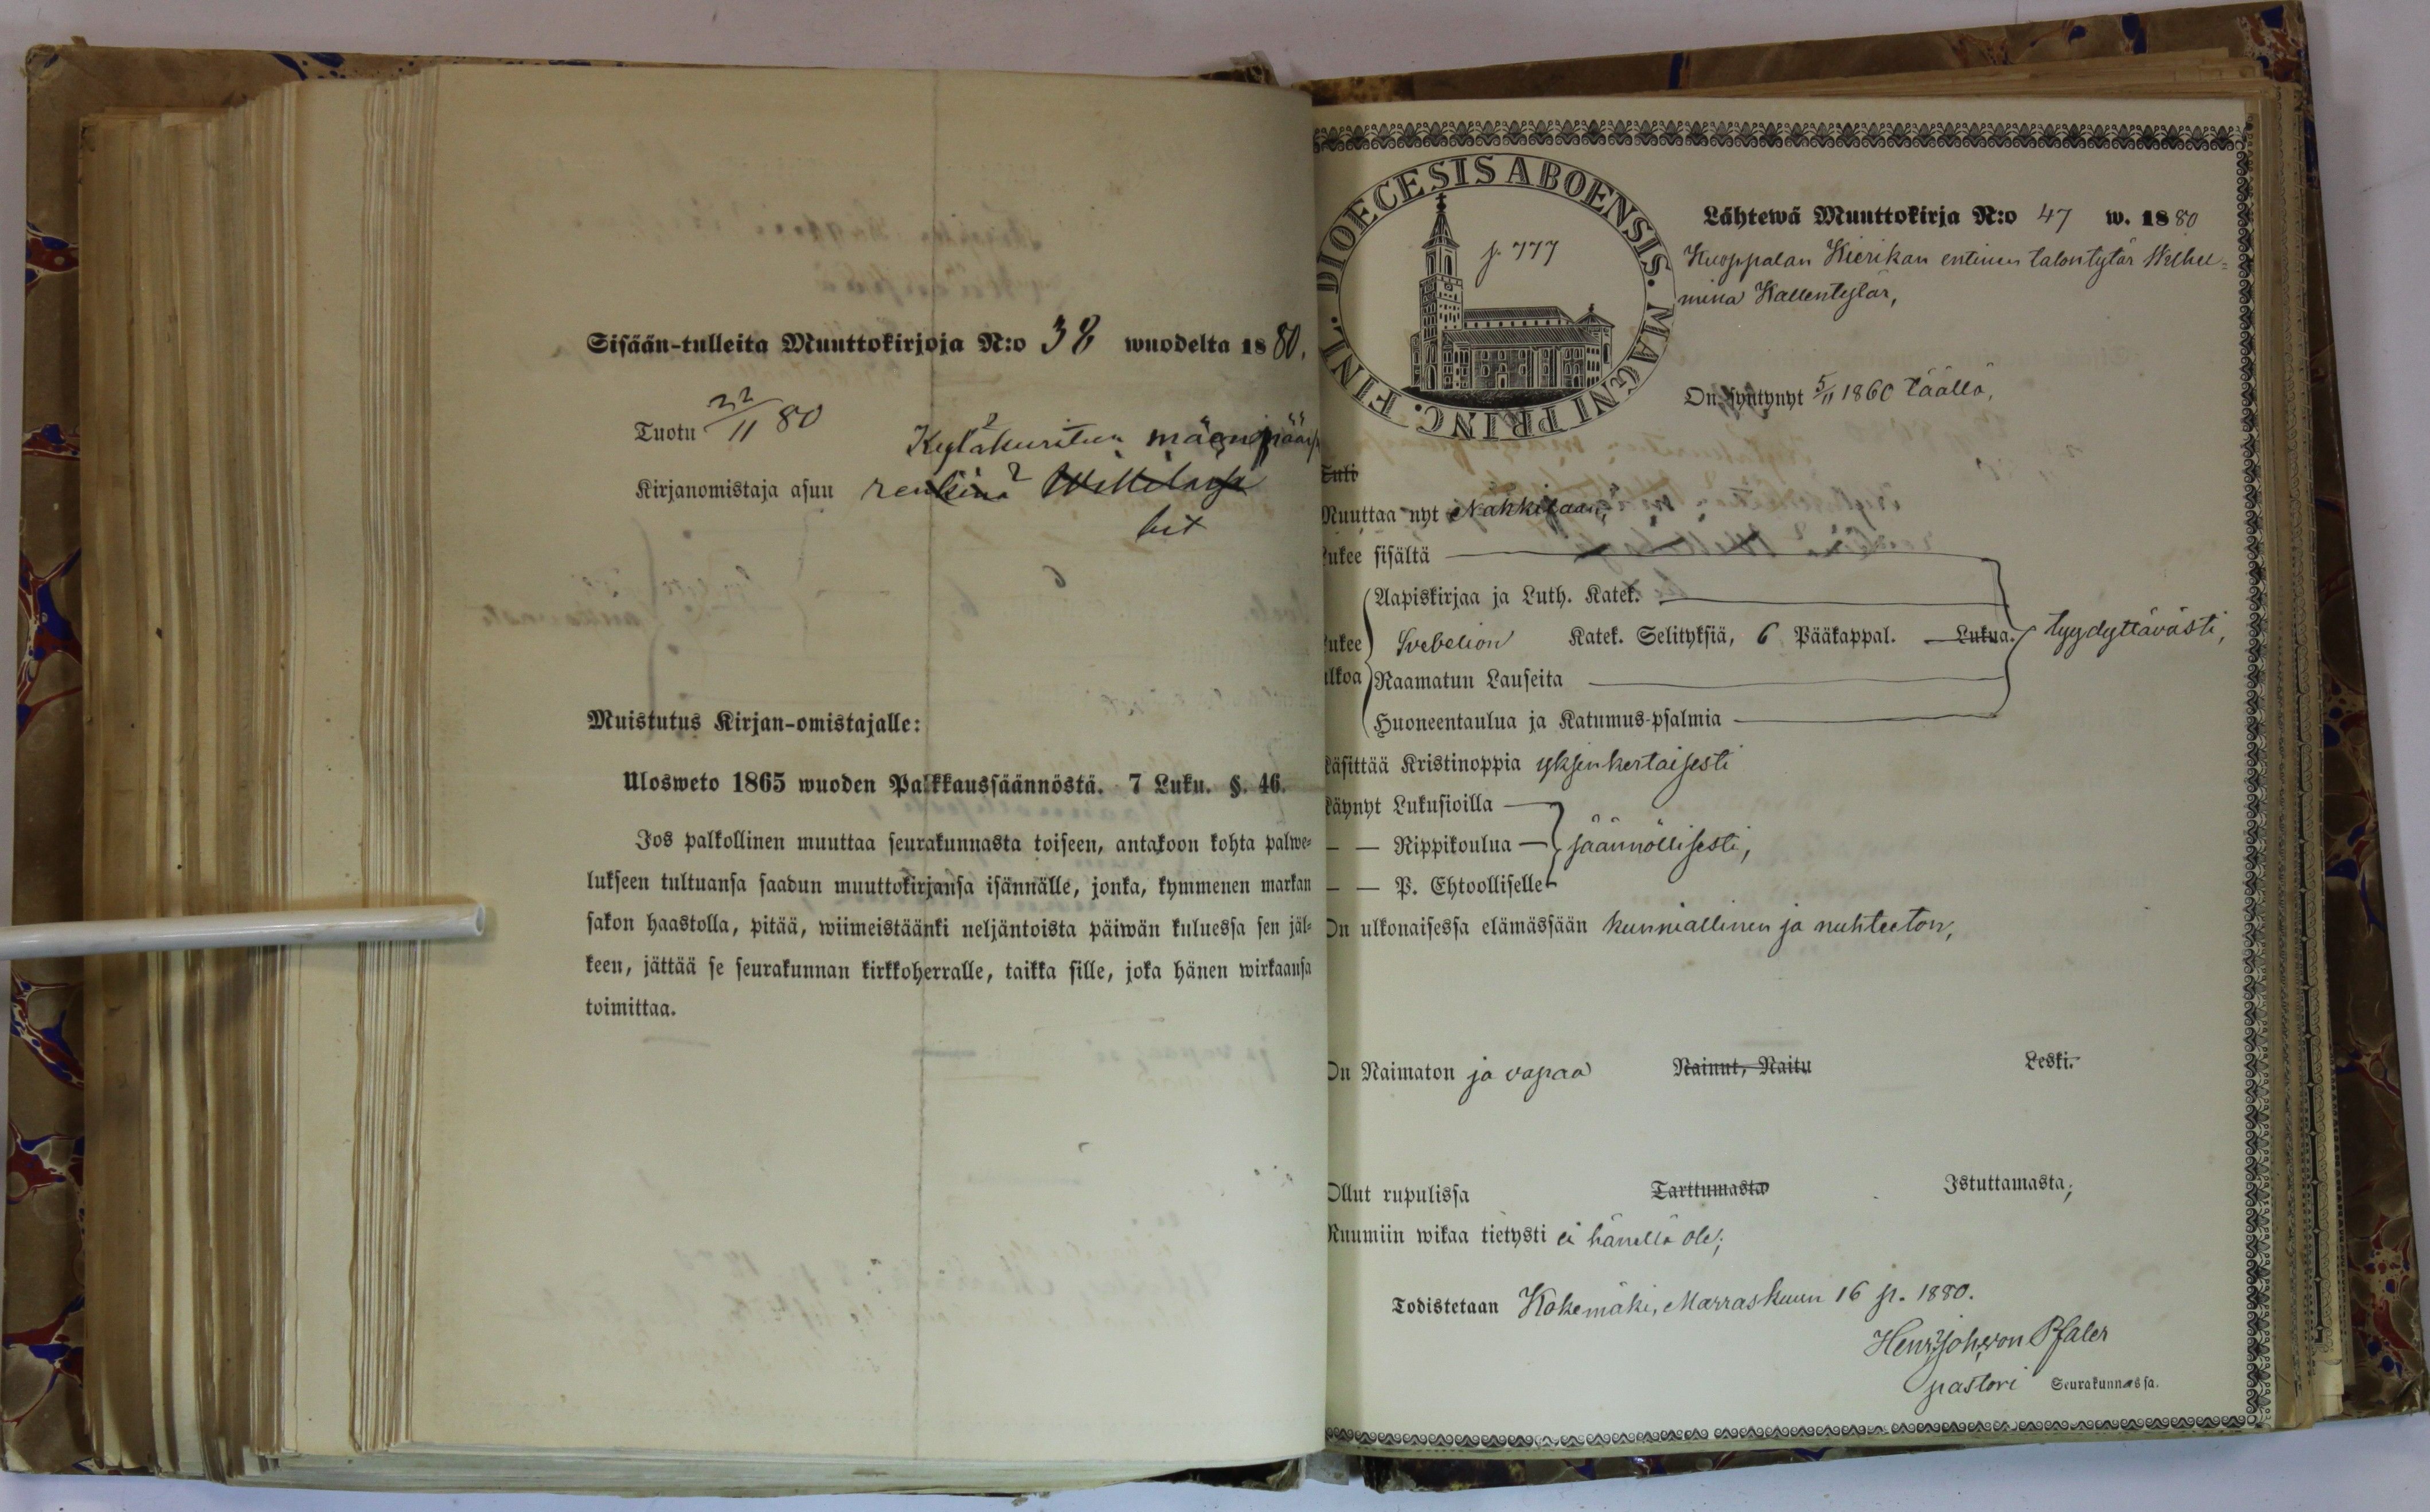 Sisään-tulleita Muuttokirjoja N:o 38 wuodelta 1880.
Tuotu 22/11 80
Kirjanomistaja asuu renkinä
Muistutus Kirjan-omistajalle:
Ulosweto 1865 wuoden Palkkaussäännöstä. 7 Luku. §. 46.
Jos palkollinen muuttaa seurakunnasta toiseen, antakoon kohta palwe-
lukseen tultuansa saadun muuttokirjansa isännälle, jonka, kymmenen markan
sakon haastolla, pitää, wiimeistäänki neljäntoista päiwän kuluessa sen jäl-
keen, jättää se seurakunnan kirkkoherralle, taikka sille, joka hänen wirkaansa
toimittaa.
DIOECESIS ABOENSIS. MAGNI PRINC. FINL.
p. 777
Lähtewä Muuttokirja N:o 47 w. 1880
Kuoppalan Kierikan entinen talontytär Wilhel-
mina Kallentytär,
On syntynyt 5/11 1860 täällä,
Tuli
Muuttaa nyt Nakkilaan,
Lukee sisältä
Aapiskirjaa ja Luth. Katek.
Lukee Svebelion Katek. Selityksiä, 6 Pääkappal. Lukua. tyydyttävästi,
ulkoa Raamatun Lauseita
Huoneentaulua ja Katumus-psalmia
Käsittää Kristinoppia yksinkertaisesti
Käynyt Lukusioilla
— — Rippikoulua — säännöllisesti,
— — P. Ehtoolliselle
On ulkonaisessa elämässään kunniallinen ja nuhteeton,
On Naimaton ja vapaa Nainut, Naitu Leski.
Ollut rupulissa Tarttumasta Istuttamasta,
Ruumiin wikaa tietysti ei hänellä ole;
Todistetaan Kokemäki, Marraskuun 16 p. 1880.
Henr. Joh. von Pfaler
pastori Seurakunnassa.